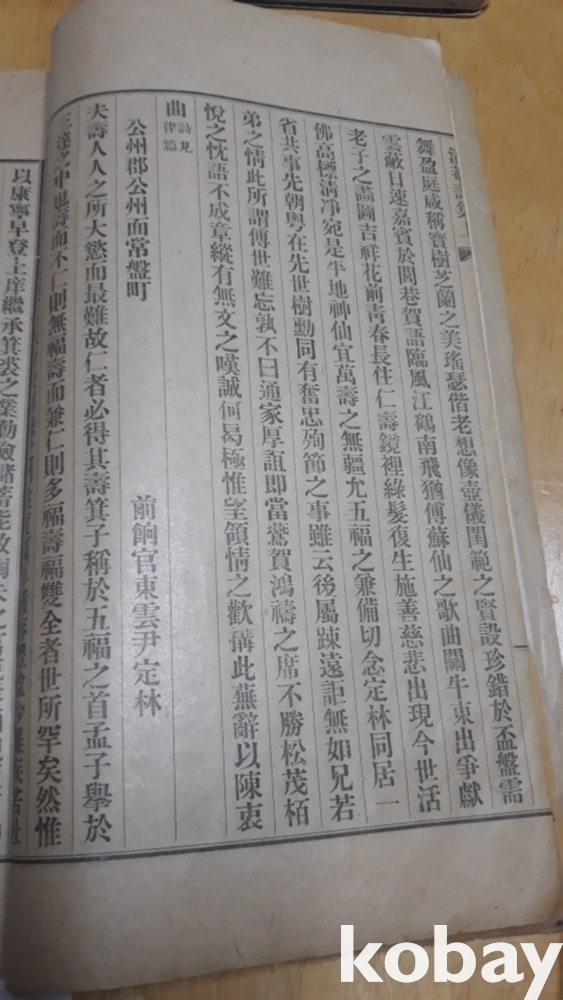 舞盈庭咸稱寶樹芝蘭之美瑤瑟偕老想像壺儀閨範之賢設珍錯於盃盤需
雲蔽日速嘉賓於閭巷賀語臨風江鶴南飛猶傳蘇仙之歌曲關牛東出爭獻
老子之壽圖吉祥花前靑春長住仁壽鏡裡綠髮復生施善慈悲出現今世活
佛高標淸淨宛是平地神仙宜萬壽之無疆尤五福之兼備切念定林同居一
省共事先朝粤在先世樹勳同有奮忠殉節之事雖云後屬踈遠詎無如兄若
弟之情此所謂傳世難忘孰不曰通家厚誼即當鶯賀鴻禱之席不勝松茂栢
悅之忱語不成章縱有無文之嘆誠何曷極惟望領情之歡搆此蕪辭以陳衷
曲 詩見律篇
公州郡公州面常盤町
前餉官東雲尹定林
夫壽人人之所大慾而最難故仁者必得其壽箕子稱於五福之首孟子擧於
三達之中也壽而不仁則無福壽而兼仁則多福壽福雙全者世所罕矣然惟
以康寧早登上庠繼承箕裘之業勤儉
kobay